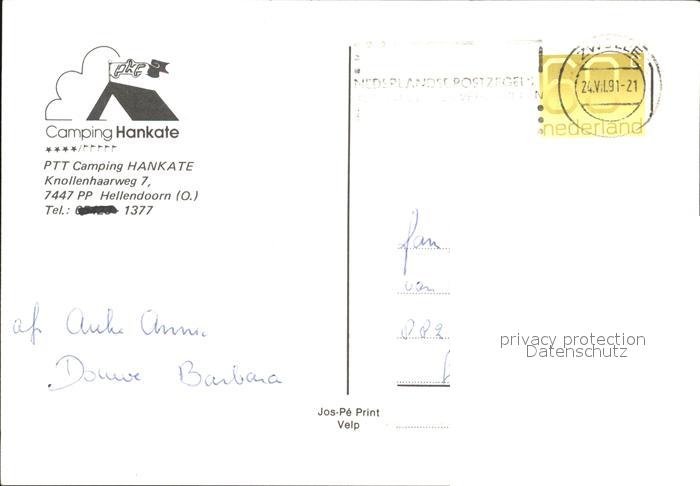 pkc
Camping Hankate
PTT Camping HANKATE
Knollenhaarweg 7,
7447 PP Hellendoorn (O.)
Tel.: 1377
NEDERLANDSE POSTZEGELS
ZWOLLE
24.VII.91-21
60
nederland
fam
van
882
af. Anke Annie
Douwe Barbara
privacy protection
Datenschutz
Jos-Pé Print
Velp